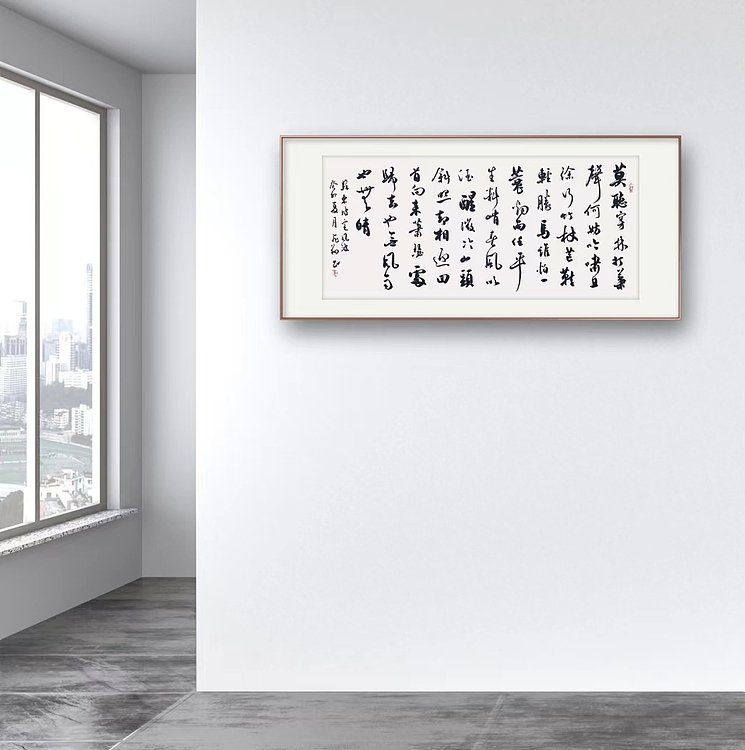 莫聽穿林打葉
聲何妨吟嘯且
徐行竹杖芒鞋
輕勝馬誰怕一
蓑烟雨任平
生料峭春風吹
酒醒微冷山頭
斜照却相迎回
首向來蕭瑟處
歸去也無風雨
也無晴
錄東坡定風波
癸卯夏月